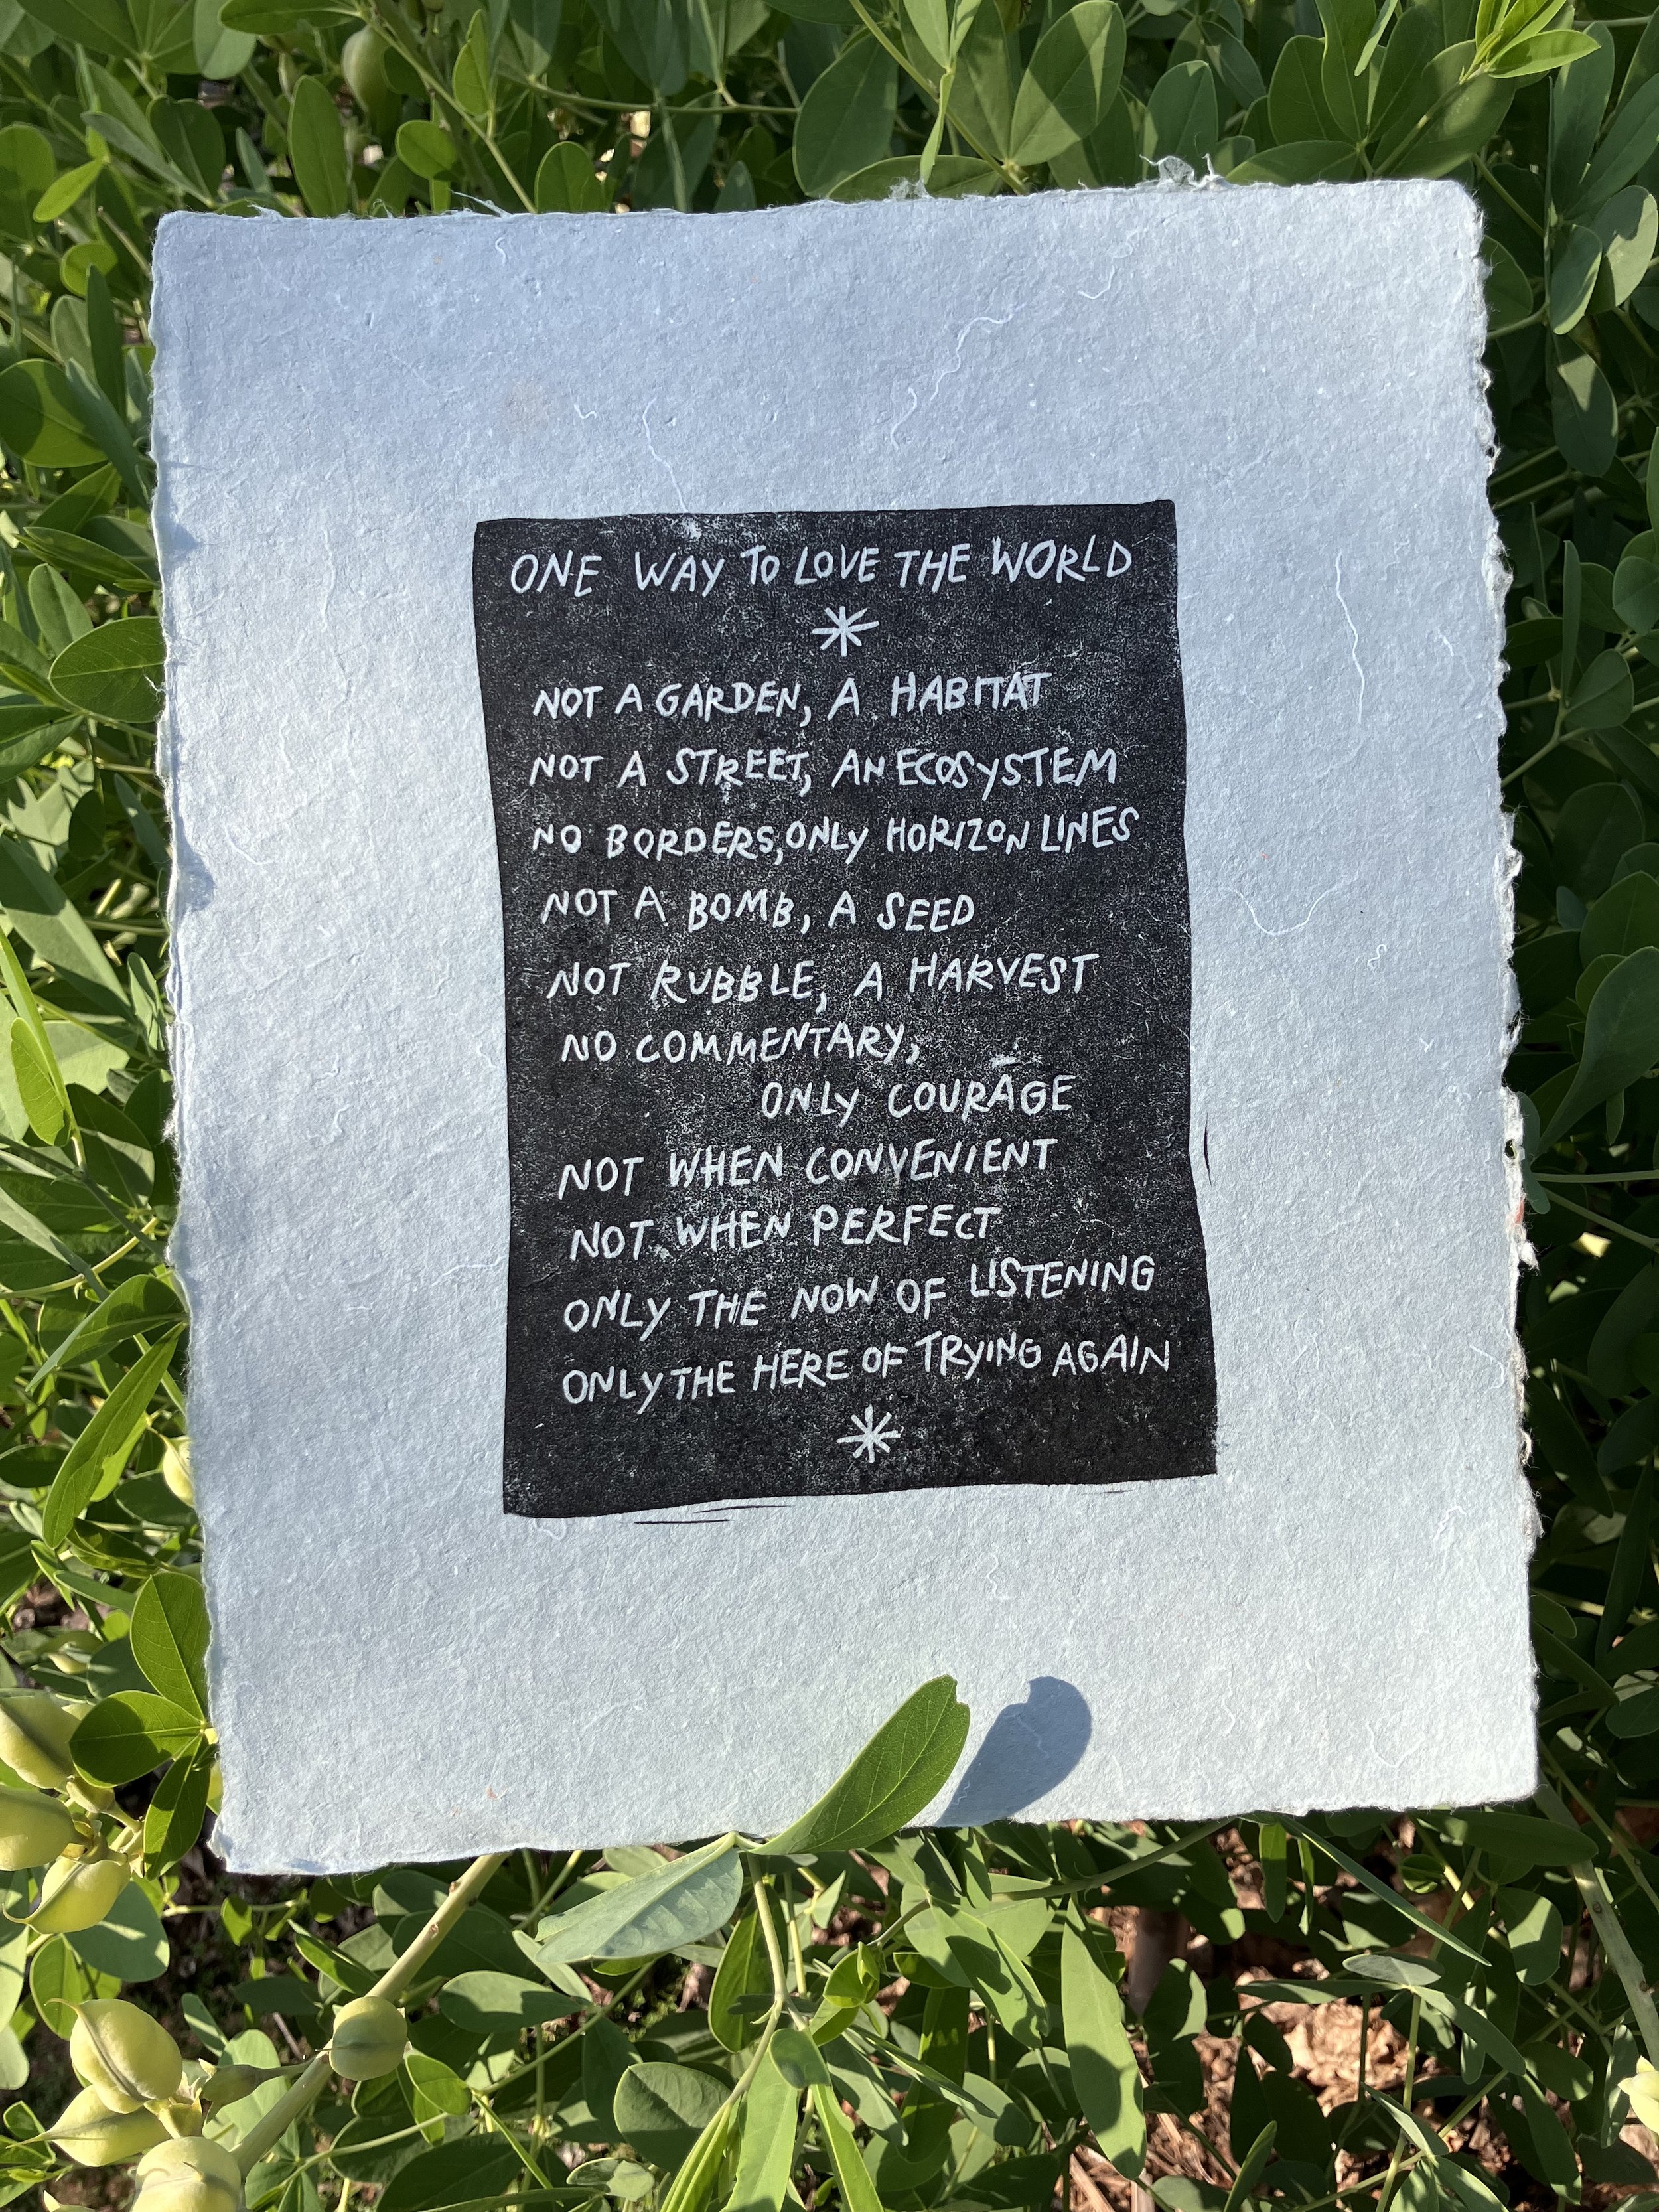 ONE WAY TO LOVE THE WORLD
NOT A GARDEN, A HABITAT
NOT A STREET, AN ECOSYSTEM
NO BORDERS, ONLY HORIZON LINES
NOT A BOMB, A SEED
NOT RUBBLE, A HARVEST
NO COMMENTARY,
ONLY COURAGE
NOT WHEN CONVENIENT
NOT WHEN PERFECT
ONLY THE NOW OF LISTENING
ONLY THE HERE OF TRYING AGAIN